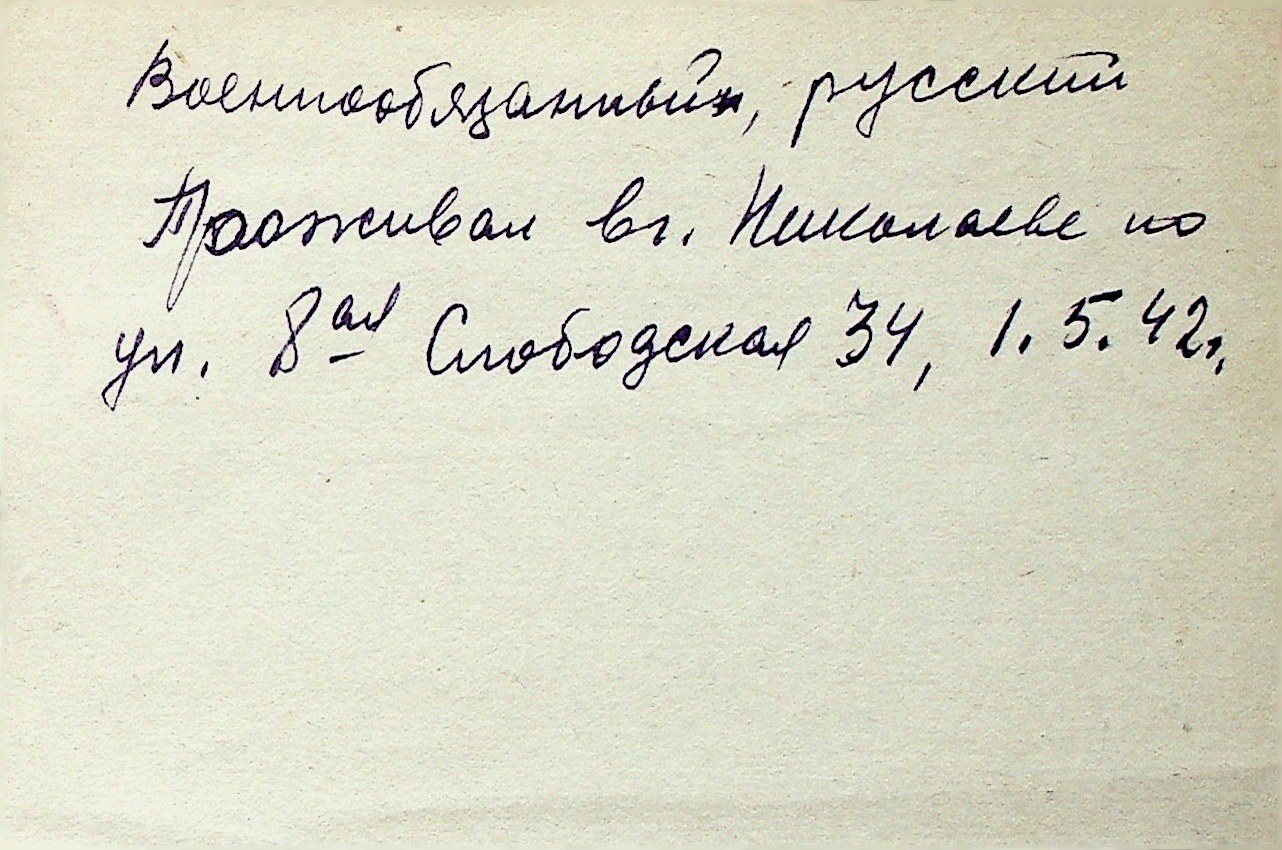 Военнообязанный, русский
Проживал в г. Николаеве по
ул. 8ая Слободская 34, 1.5.42г.